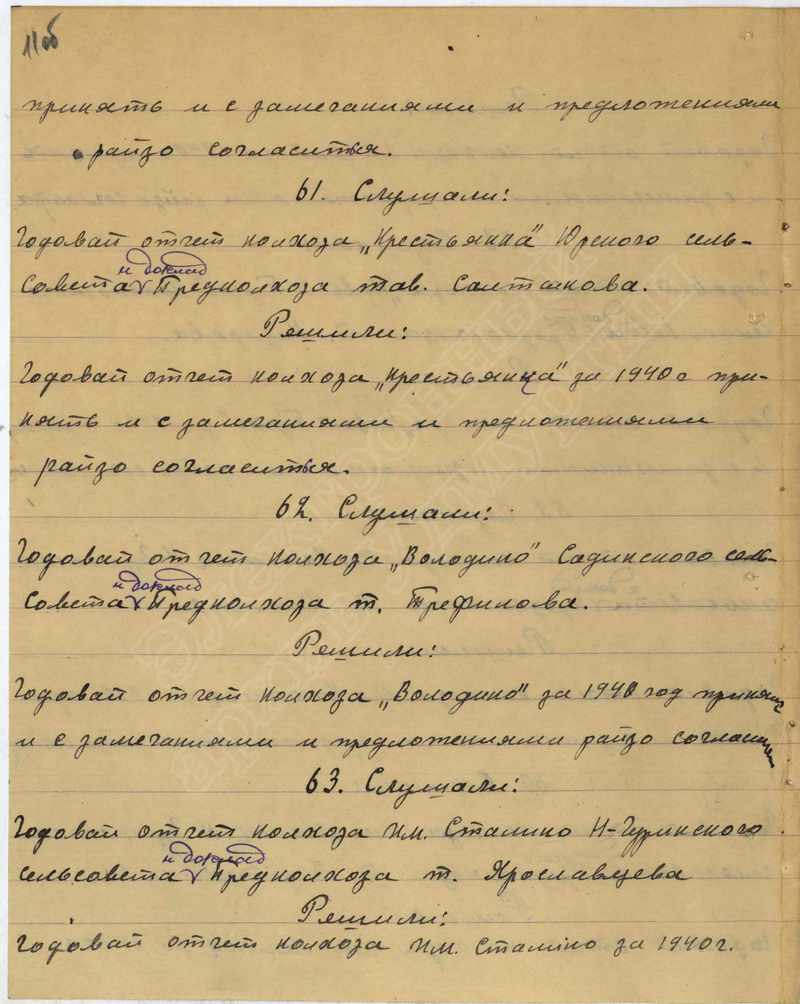 11об
принять и с замечаниями и предложениями
райзо согласиться.
61. Слушали:
Годовай отчет колхоза „Крестьянка" Юрского сель-
и доклад
совета Предколхоза тов. Салтакова.
Решили:
Годовай отчет колхоза „Крестьянка" за 1940 г при-
нять и с замечаниями и предложениями
райзо согласиться.
62. Слушали:
Годовай отчет колхоза „Володино" Садинского сель-
и доклад
совета Предколхоза т. Трефилова.
Решили:
Годовай отчет колхоза „Володино" за 1940 год принять
и с замечаниями и предложениями райзо согласиться
63. Слушали:
Годовай отчет колхоза им. Сталино
и доклад
сельсовета Предколхоза т. Ярославцева
Решили:
Годовай отчет колхоза им. Сталино за 1940г.